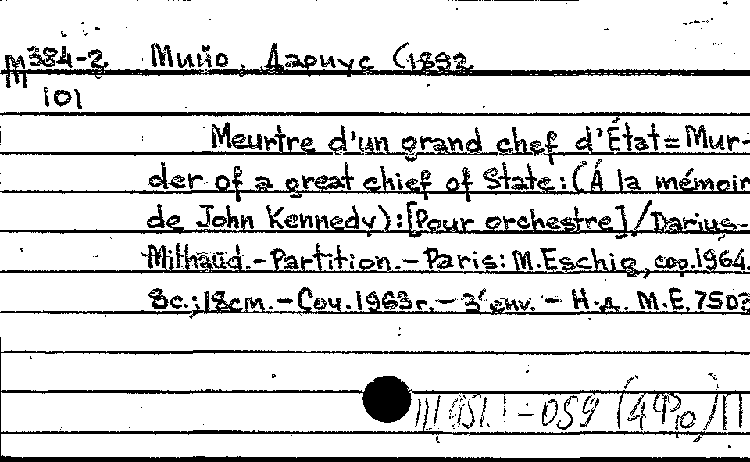 М384-2 Мийо, Дариус (1892
101
Meurtre d'un grand chef d'État=Mur-
der of a great chief of State:(Á la mémoir
de John Kennedy):[Pour orchestre]/Darius-
Milhaud.-Partition.-Paris: M.Eschig, cop.1964.
8c.;18cm.-Соч.1963г.-3'env.-Н.д. M.E.7503
Ш951.1-059(4Фр)П